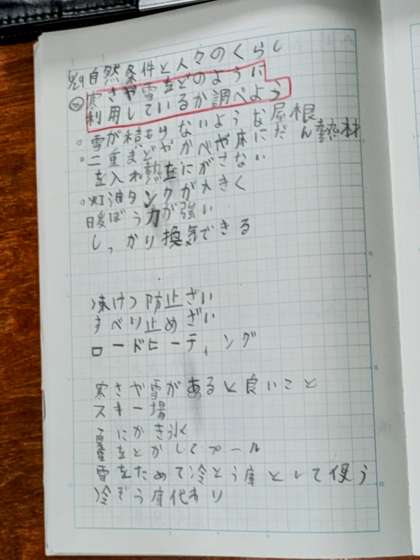 5/29自然条件と人々のくらし
寒さや雪をどのように
利用しているか調べよう
○雪が積もらないような屋根
○二重まどやかべや床にだん熱材
を入れ熱をにがさない
○灯油タンクが大きく
暖ぼう力が強い
しっかり換気できる
凍けつ防止ざい
すべり止めざい
ロードヒーティング
寒さや雪があると良いこと
スキー場
にかき氷
雪をとかしてプール
雪をためて冷とう庫として使う
冷ぞう庫代わり